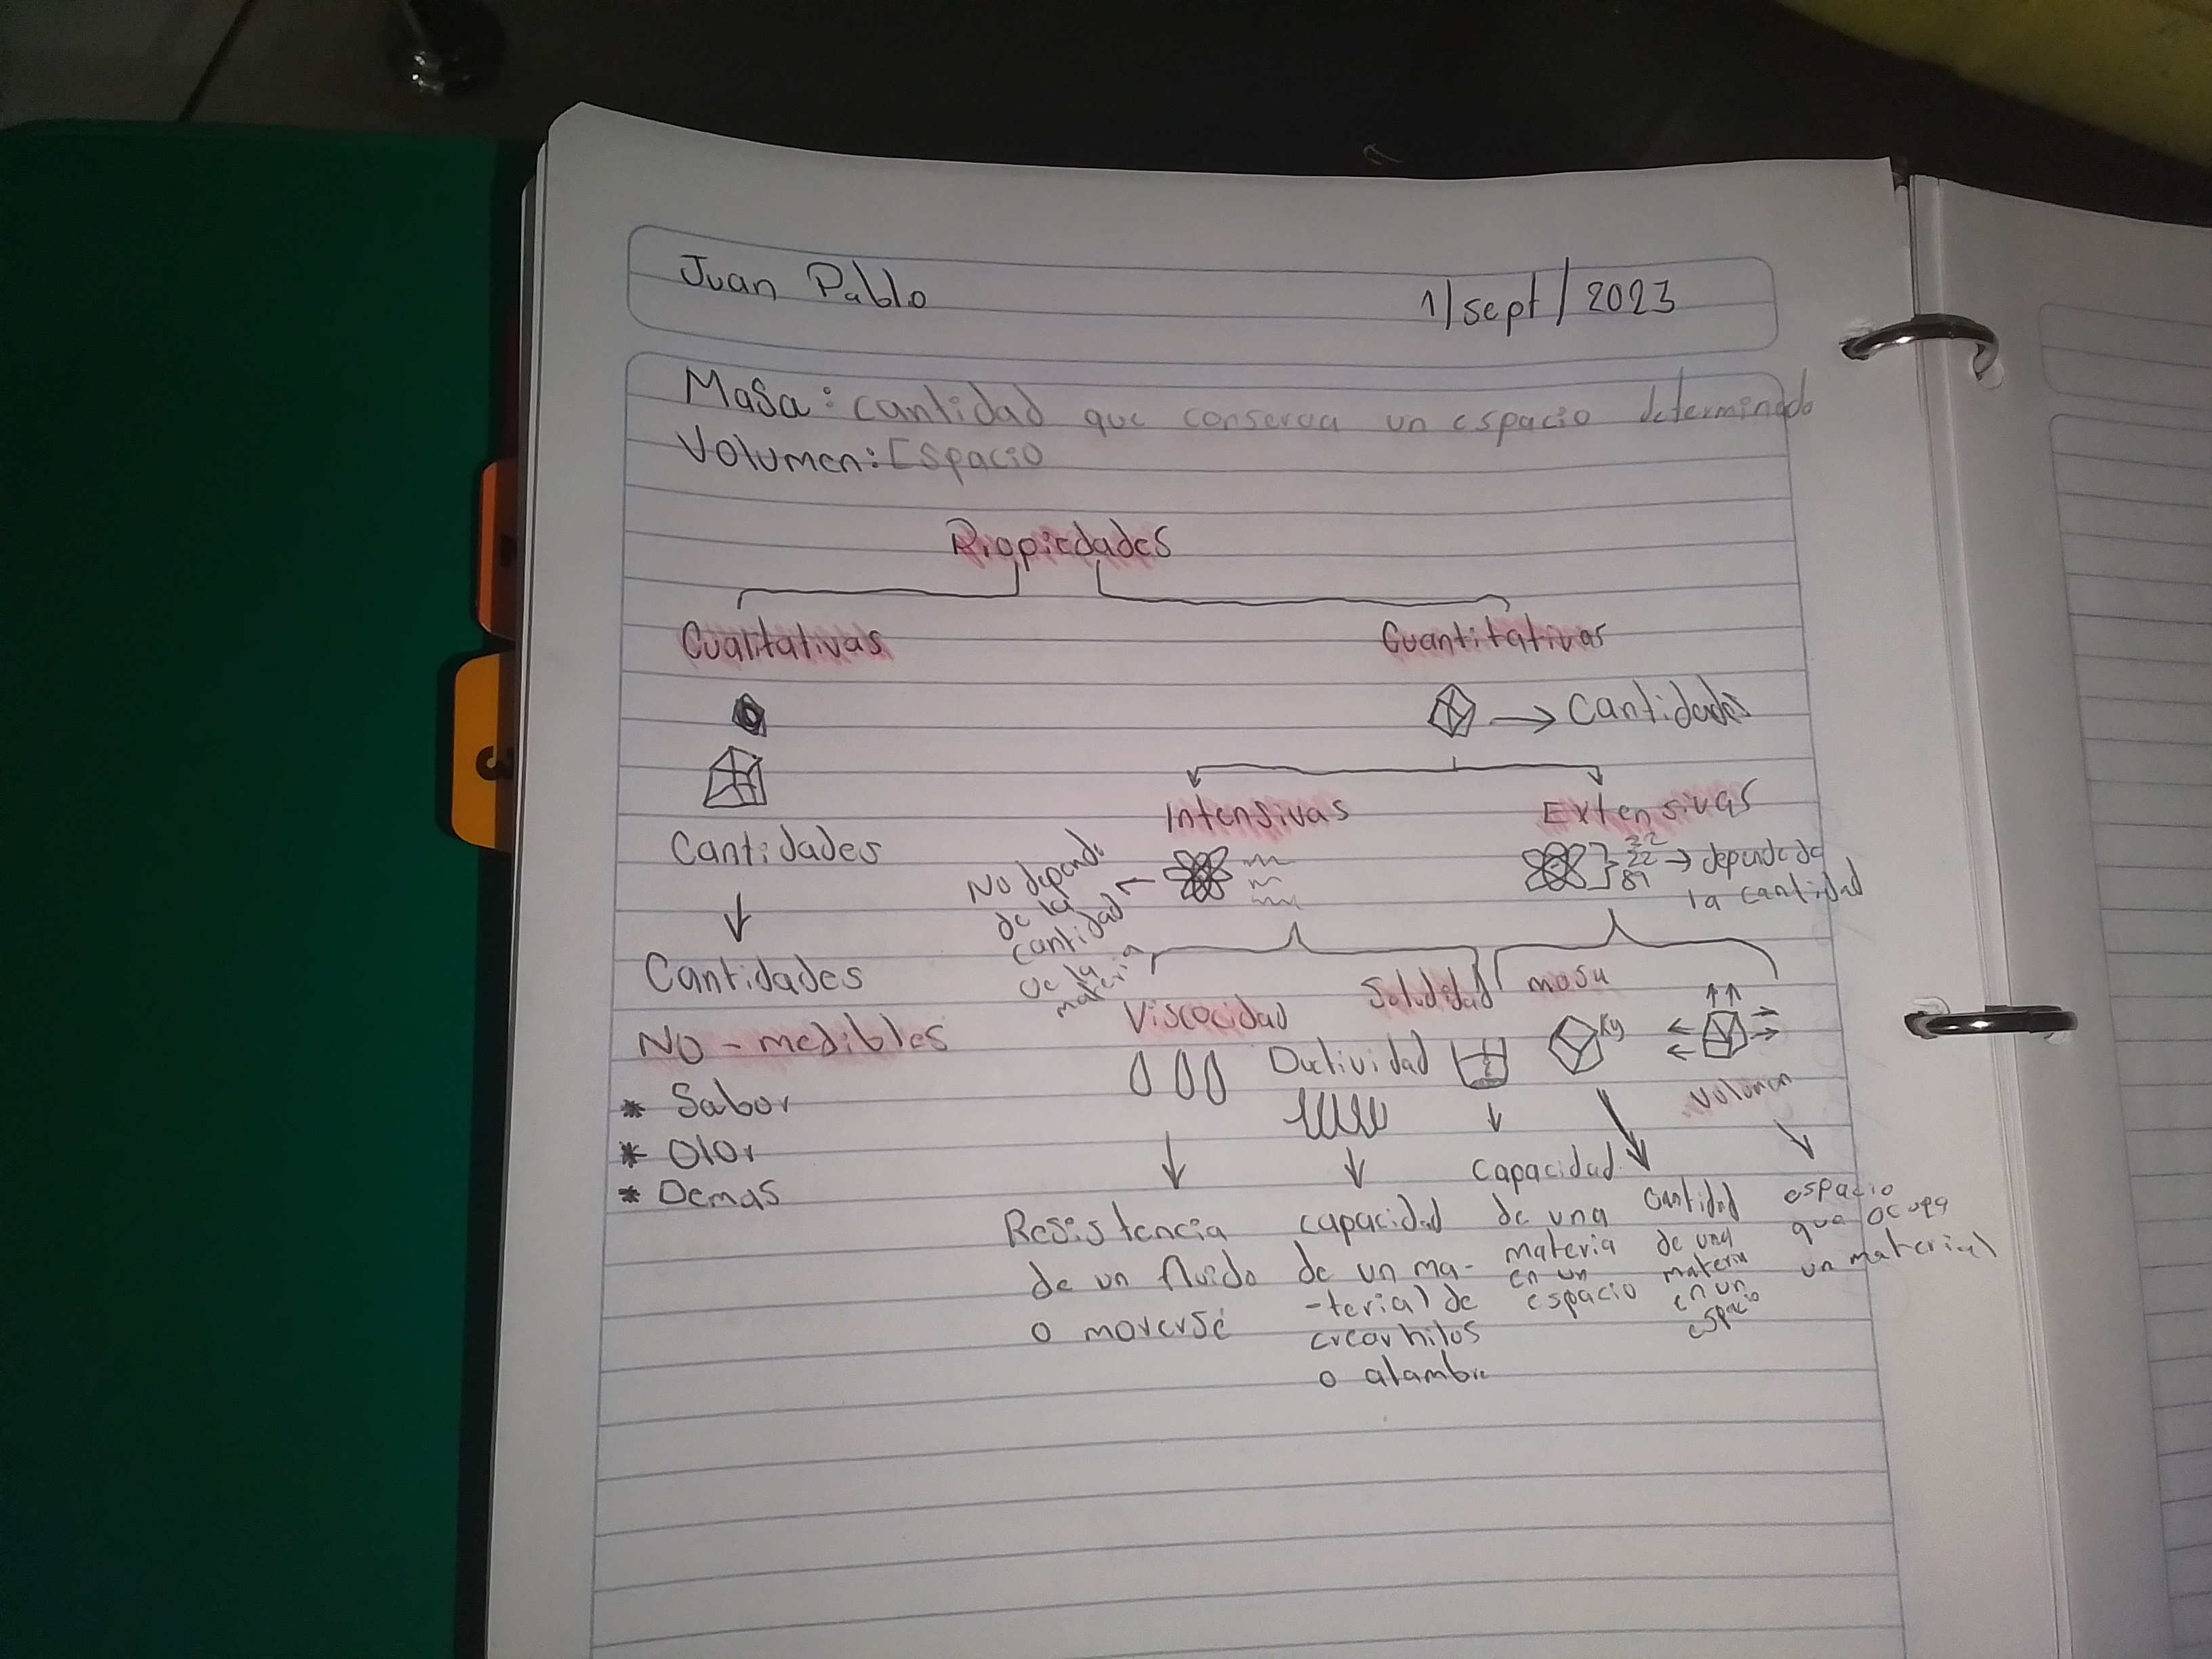 Juan Pablo
1/sept/2023
Masa: cantidad que conserva un espacio determinado
Volumen: Espacio
Propiedades
Cualitativas
Cuantitativas
→ Cantidades
Cantidades
↓
Cantidades
No-medibles
* Sabor
* Olor
* Demas
Intensivas
No depende
de la
cantidad
de la
materia
Extensivas
22
89
→ depende de
la cantidad
Viscocidad
Ductividad
masa
Kg
Volumen
Resistencia
de un fluido
o moverse
capacidad
de un ma-
-terial de
crear hilos
o alambre
Capacidad
de una
materia
en un
espacio
Cantidad
de una
materia
en un
espacio
espacio
que ocupa
un material
3